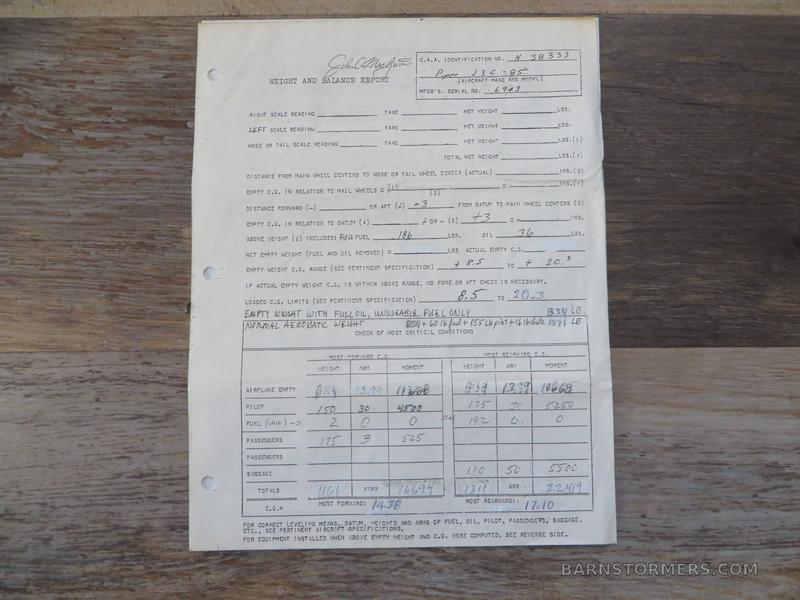 C.A.A. IDENTIFICATION NO. N 38333
WEIGHT AND BALANCE REPORT
Piper J3C-85
(AIRCRAFT MAKE AND MODEL)
MFGR'S. SERIAL NO. 6943
RIGHT SCALE READING TARE NET WEIGHT LBS.
LEFT SCALE READING TARE NET WEIGHT LBS.
NOSE OR TAIL SCALE READING TARE NET WEIGHT LBS.(1)
TOTAL NET WEIGHT LBS.(2)
DISTANCE FROM MAIN WHEEL CENTERS TO NOSE OR TAIL WHEEL CENTER (ACTUAL) INS.(3)
EMPTY C.G. IN RELATION TO MAIL WHEELS = (1) (2) = INS.(4)
DISTANCE FORWARD (-) OR AFT (+) +3 FROM DATUM TO MAIN WHEEL CENTERS (5)
EMPTY C.G. IN RELATION TO DATUM (4) + OR - (5) +3 = INS.
ABOVE WEIGHT (2) INCLUDES: FULL FUEL 186 LBS. OIL 36 LBS.
NET EMPTY WEIGHT (FUEL AND OIL REMOVED) = LBS ACTUAL EMPTY C.G.
EMPTY WEIGHT C.G. RANGE (SEE PERTINENT SPECIFICATION) + 8.5 TO + 20.3
IF ACTUAL EMPTY WEIGHT C.G. IS WITHIN ABOVE RANGE, NO FORE OR AFT CHECK IS NECESSARY.
LOADED C.G. LIMITS (SEE PERTINENT SPECIFICATION) 8.5 TO 20.3
EMPTY WEIGHT WITH FULL OIL, UNUSEABLE FUEL ONLY 834 LB
NORMAL AEROBATIC WEIGHT 834 + 60 lb fuel + 155 lb pilot + 16 lb chute LB
CHECK OF MOST CRITICAL CONDITIONS
MOST FORWARD C.G. MOST REARWARD C.G.
WEIGHT ARM MOMENT WEIGHT ARM MOMENT
AIRPLANE EMPTY 834 13.99 834 12.79 10668
PILOT 150 30 4500 175 30 5250
FUEL → 2 0 0 192 0 0
PASSENGERS 175 3 525
PASSENGERS
BAGGAGE 110 50 5500
TOTALS 1161 XXXX 16694 1311 XXX 22419
C.G.= MOST FORWARD: 14.38 MOST REARWARD: 17.10
FOR CORRECT LEVELING MEANS, DATUM, WEIGHTS AND ARMS OF FUEL, OIL, PILOT, PASSENGERS, BAGGAGE,
ETC., SEE PERTINENT AIRCRAFT SPECIFICATIONS.
FOR EQUIPMENT INSTALLED WHEN ABOVE EMPTY WEIGHT AND C.G. WERE COMPUTED, SEE REVERSE SIDE.
BARNSTORMERS.COM